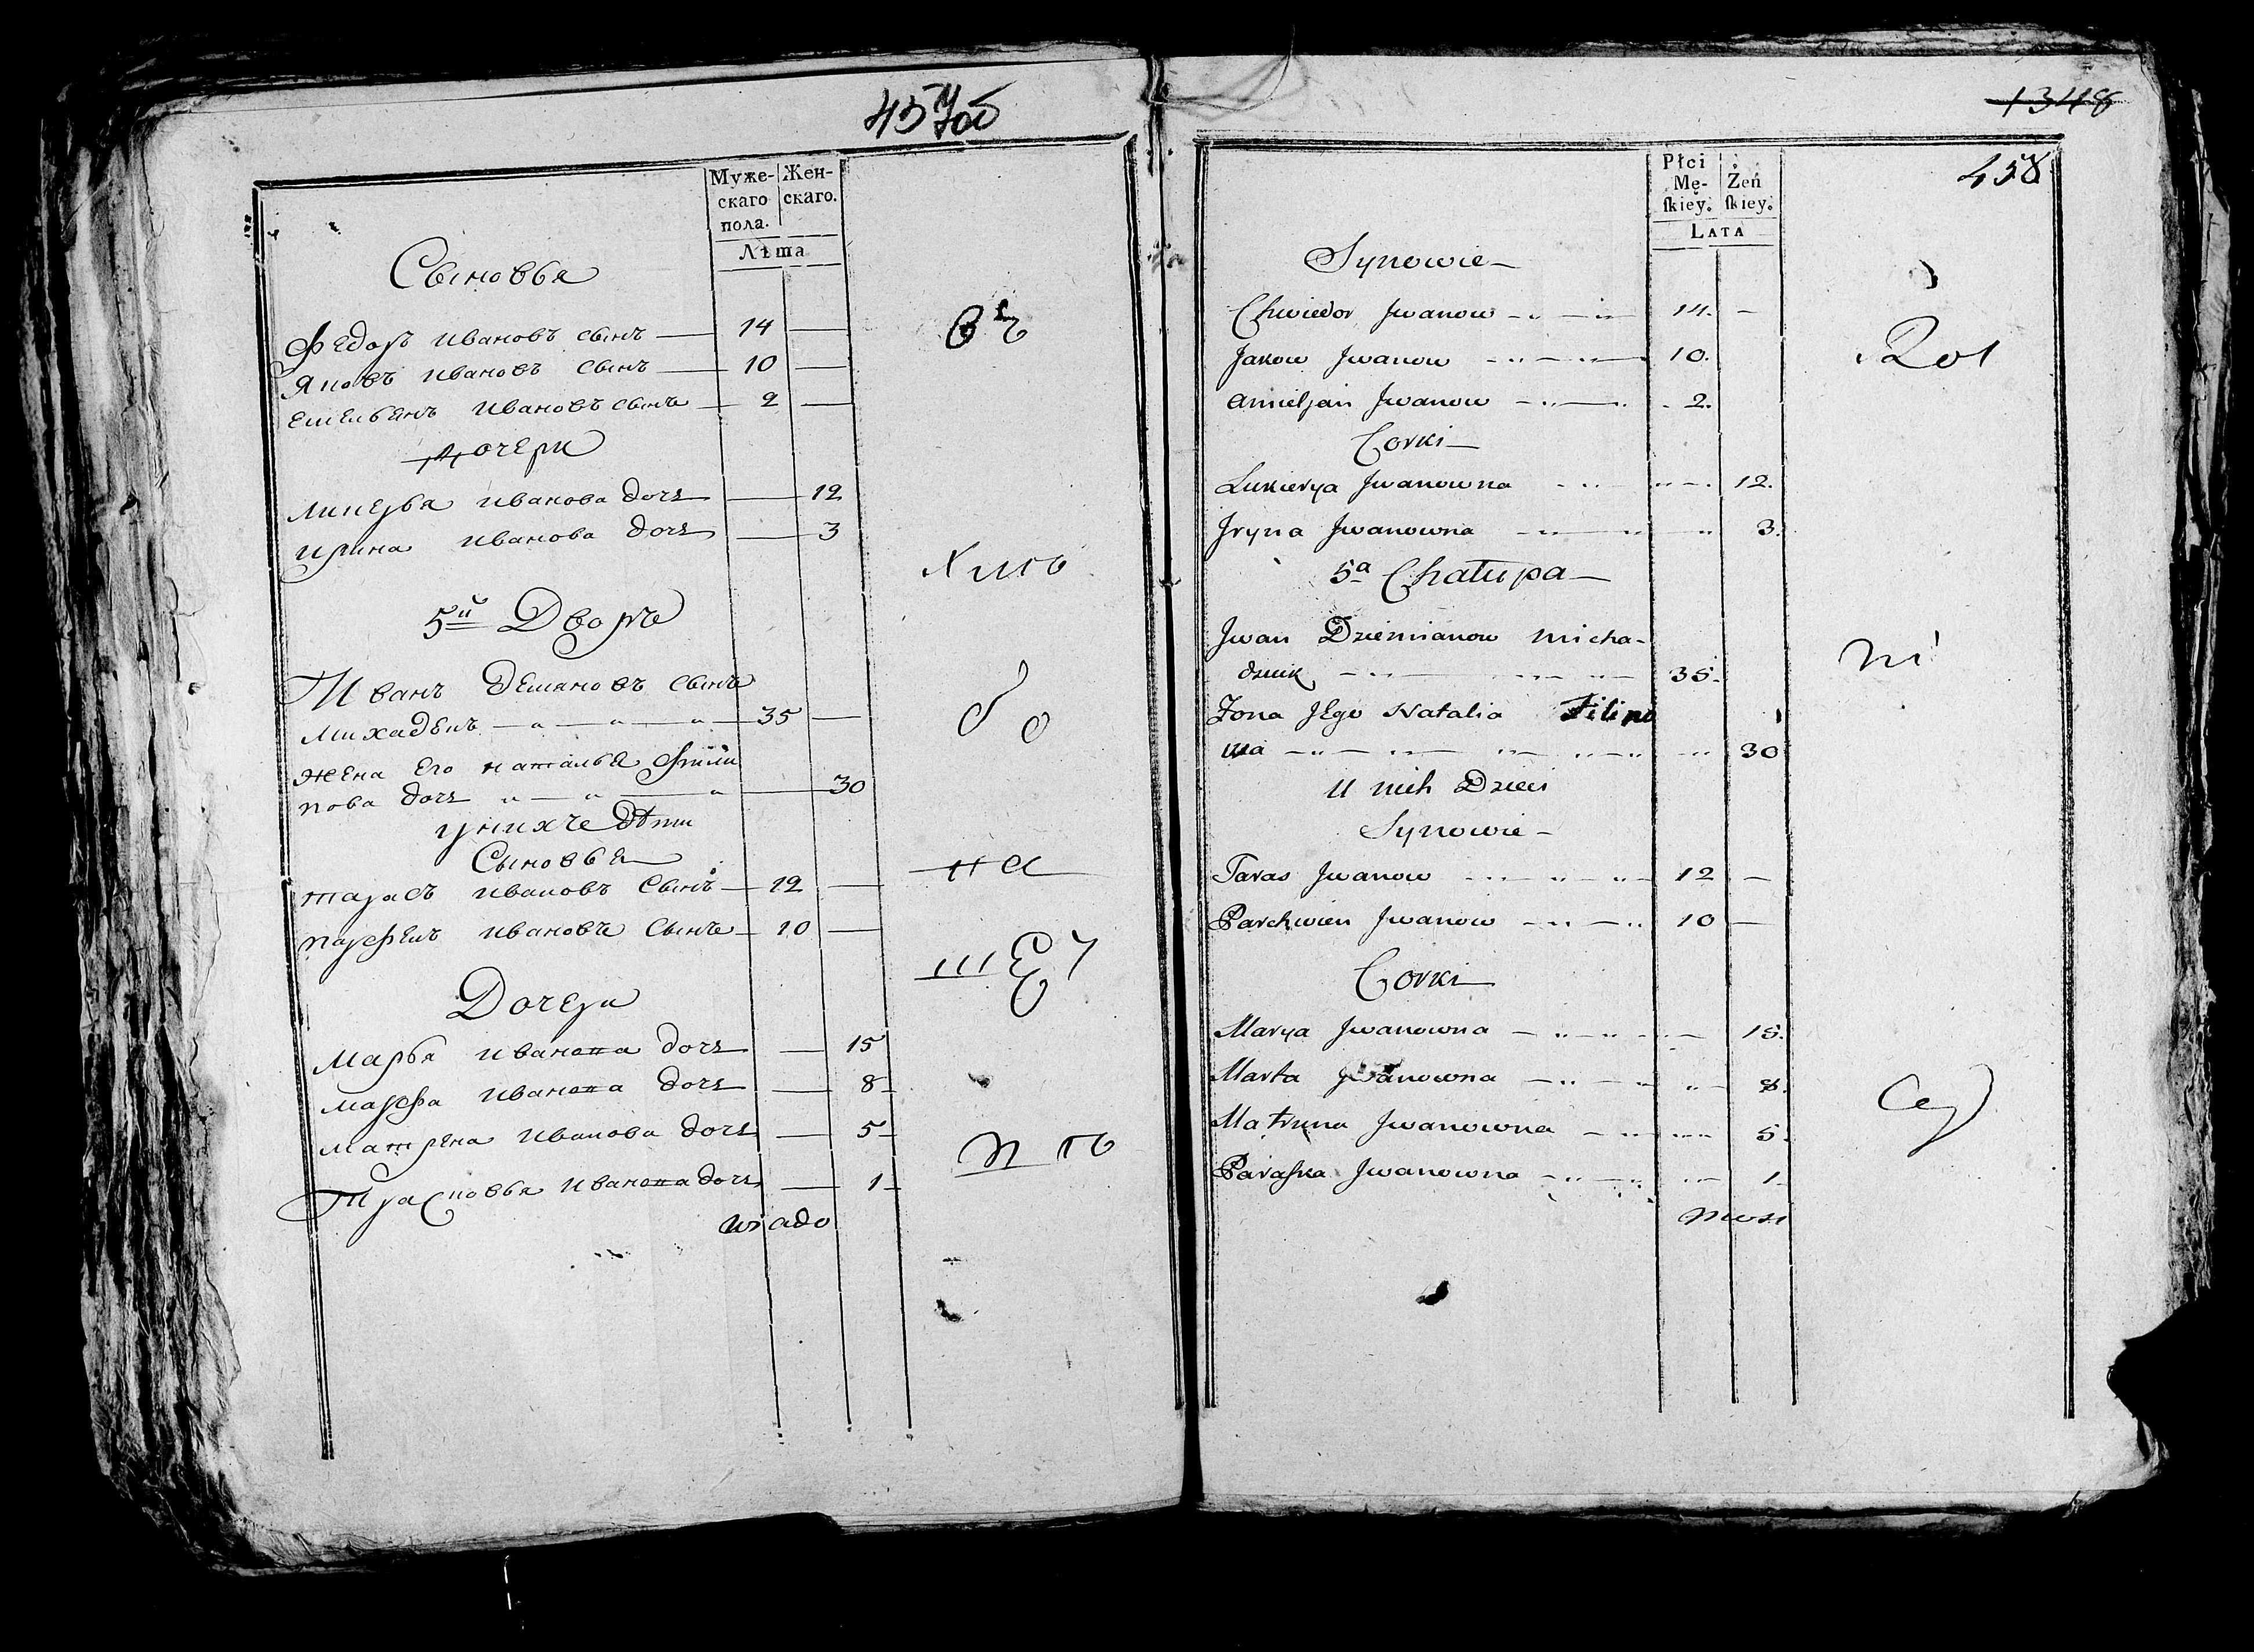 457об
Муже- Жен-
скаго скаго.
пола.
Лѣта
Сыновья
Федоръ Ивановъ сынъ — 14 —
Яковъ Ивановъ сынъ — 10 —
Емельенъ Ивановъ сынъ — 2 —
Дочери
Иванова дочь — 12
Ирина Иванова дочь — 3
5й Дворъ
Иванъ Демяновъ сынъ
Михадюкъ — „ — „ — „ — 35 —
Жена Его Наталья Фили
пова дочь „ — „ — „ — 30
у нихъ дѣти
Сыновья
Тарасъ Ивановъ Сынъ — 12 —
Парфенъ Ивановъ Сынъ — 10 —
Дочери
Марья Иванова дочь — 15
Марфа Иванова дочь — 8
Матрена Иванова дочь — 5
Иванова дочь — 1
на
1348
458
Płci Żeń
Mę- skiey.
skiey.
LATA
Synowie
Chwiedor Jwanow 14. —
Jakow Jwanow 10.
Amieljan Jwanow 2.
Corki
Lukierya Jwanowna 12.
Jryna Jwanowna 3.
5a Chałupa
Jwan Dziemianow Micha-
dziuk 35.
Zona Jego Natalia Filipo
wa 30
U nich Dzieci
Synowie
Taras Jwanow 12 —
Parchwien Jwanow 10 —
Corki
Marya Jwanowna 15.
Marta Jwanowna 8.
Matruna Jwanowna 5.
Paraska Jwanowna 1.